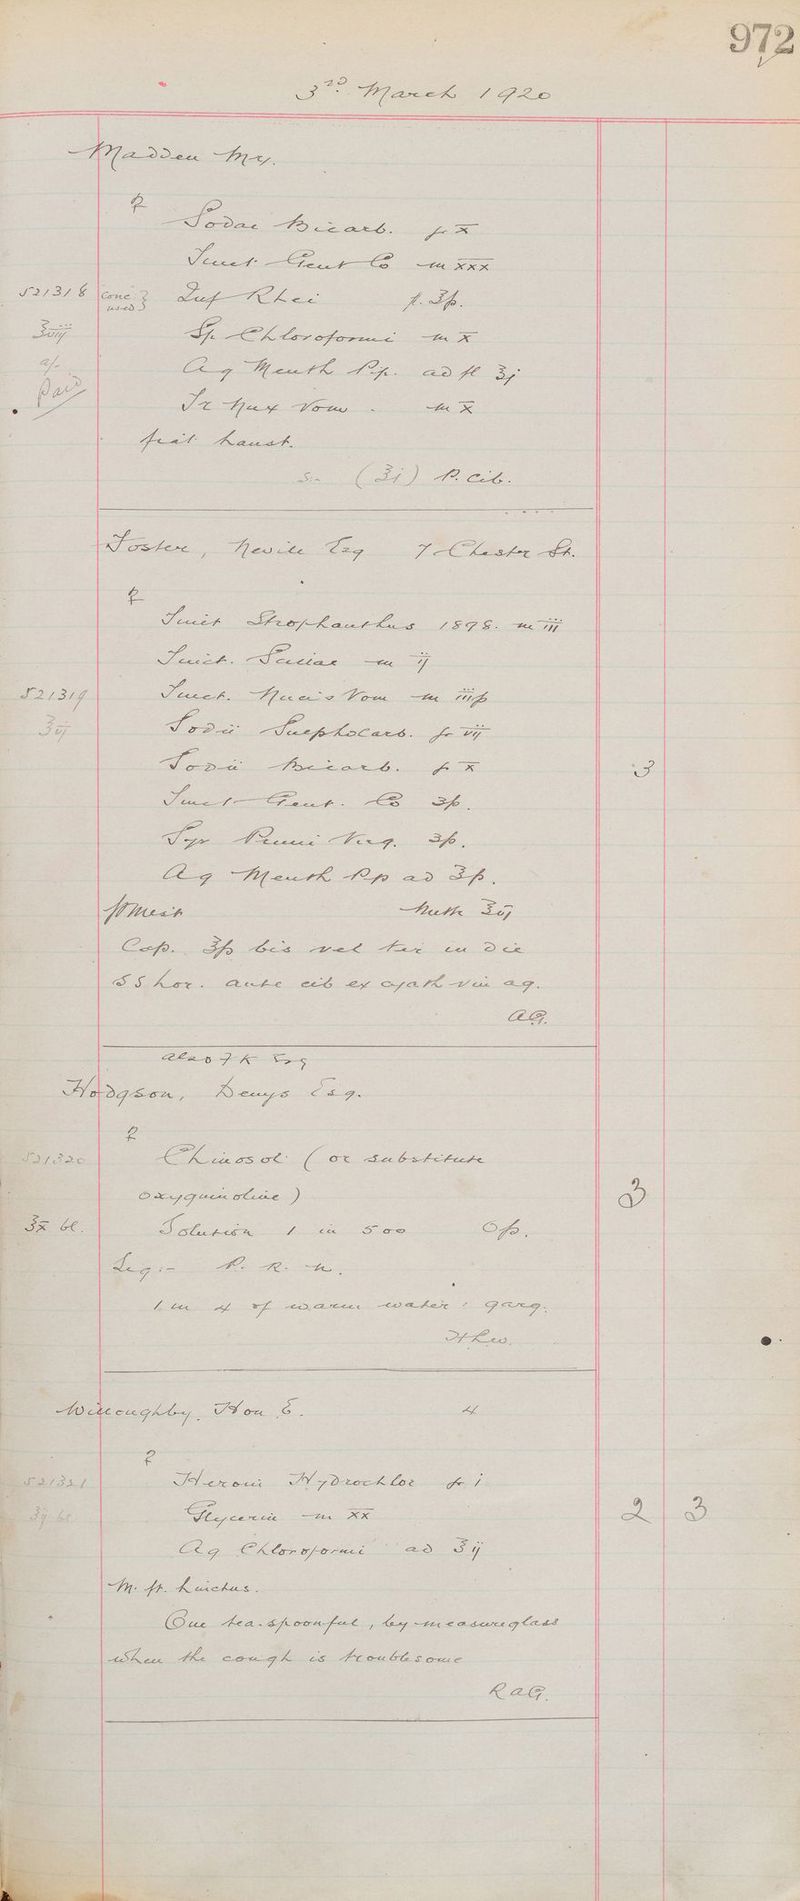 972
3rd March 1920
Madden Mrs.
℞
Sodae Bicarb. gr x
Tinct Gent Co m xxx
521318 conc used } Inf Rhei fl. ʒſs.
℥viij Sp Chloroformi m x
a/- Aq Menth Pip. ad fl ℥j
Paid Tr Nux Vom . m x
fiat haust.
S:- (℥j) P. cib.
Foster, Nevile Esq 7 Chester St.
℞
Tinct Strophanthus 1898. m iii
Tinct. Scillae m ij
521319 Tinct. Nucis Vom m iiiſs
℥vj Sodii Sulphocarb. gr vij
Sodii Bicarb. gr x 3
Tinct Gent. Co ʒſs.
Syr Pruni Virg. ʒſs.
Aq Menth Pip ad ℥ſs.
ft Mist Mitte ℥vj
Cap. ℥ſs bis vel ter in die
SS hor. ante cib ex cyath vin aq.
AG.
also F K Esq
Hodgson, Denys Esq.
℞
521320 Chinosol (or substitute
oxyquinoline) 3
℥x bl. Solution 1 in 500 Oſs.
Sig:- P. R. N.
1 in 4 of warm water: garg.
Willoughby, Hon E. 4
℞
521321 Heroin Hydrochlor gr i
℥ij bl Glycerin m xx 2 3
Aq Chloroformi ad ℥ij
M. ft. Linctus.
One tea-spoonful, by measure glass
when the cough is troublesome
RAG.